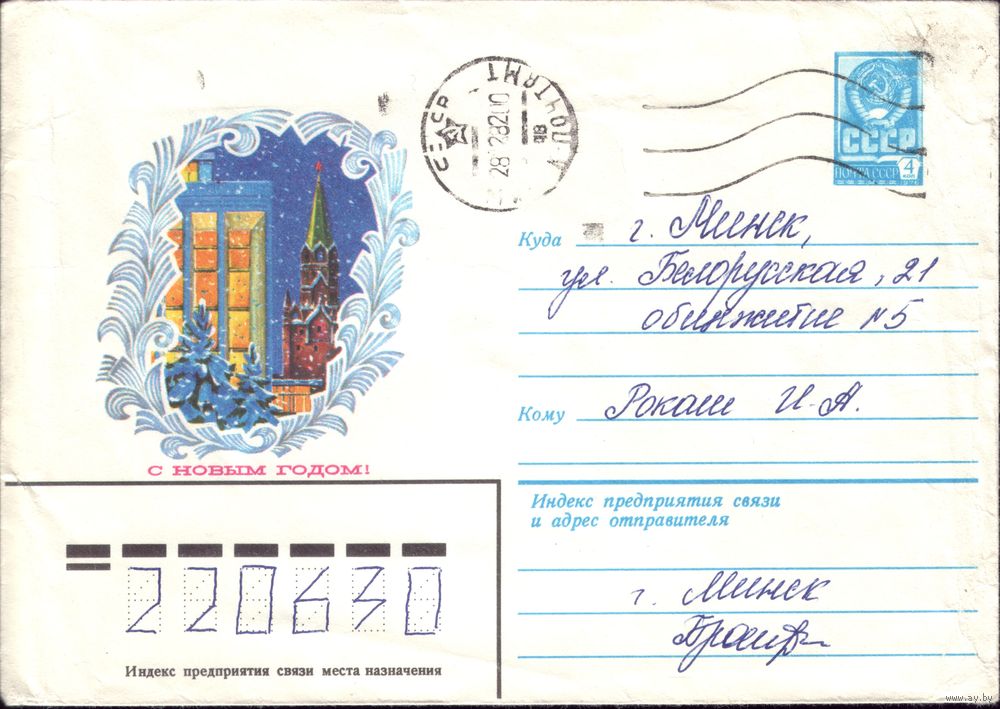 СССР
ПОЧТАМТ
28 12 82 00
СССР
ПОЧТА СССР
4
КОП
Куда г. Минск,
ул. Белорусская, 21
общежитие N5
Кому Рокаш И.А.
С НОВЫМ ГОДОМ!
Индекс предприятия связи
и адрес отправителя
г. Минск
220630
Индекс предприятия связи места назначения
www.ay.by